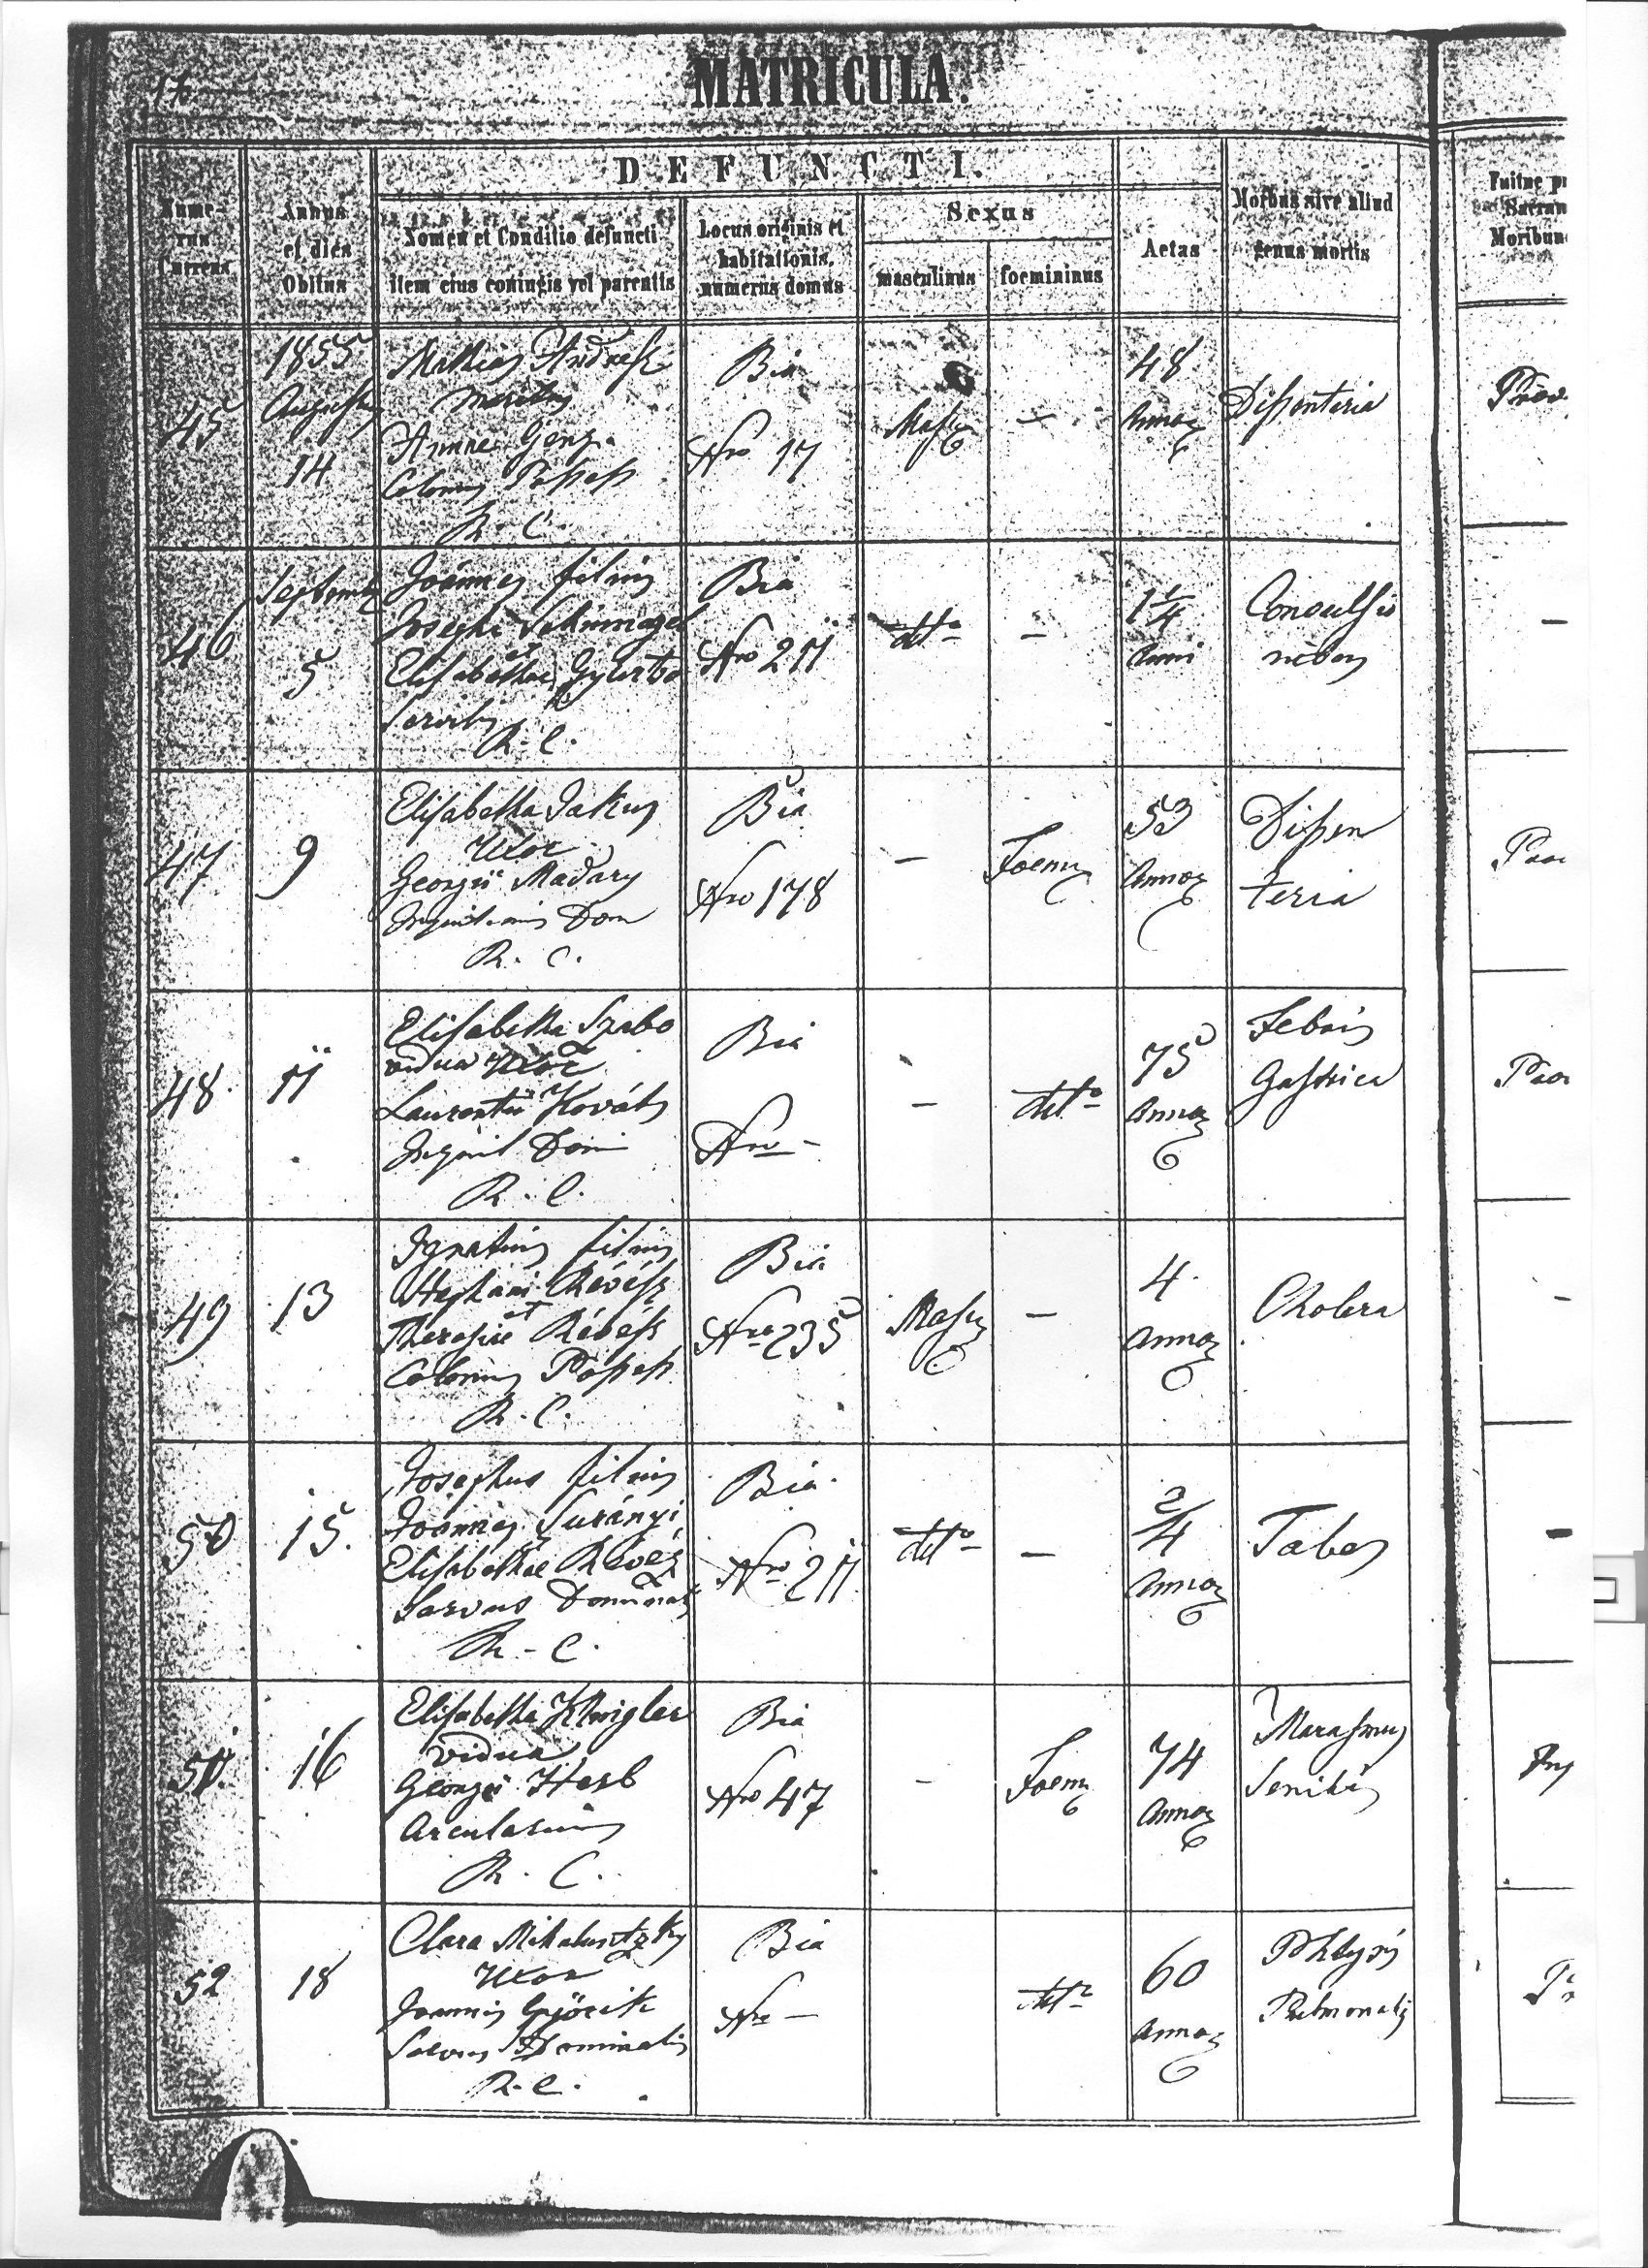 176
MATRICULA.
DEFUNCTI.
Nume-
rus
Currens
Annus
et dies
Obitus
Nomen et Conditio defuncti
item eius coniugis vel parentis
Locus originis et
habitationis,
numerus domus
Sexus
masculinus
foemininus
Aetas
Morbus sive aliud
genus mortis
Fuitne pr
Sacram
Moribun
45
1855
Augusty
14
Mathias Andresz
maritus
Annae
Colonus Possess
R. C.
Bia
Nro 17
Masc
-
48
Annor
Dissenteria
Prov.
46
Septemb
5
Joannes filius
Josephi Schönnagel
et
Elisabethae
Servilis
R. C.
Bia
Nro 211
detto
-
1 1/4
Anni
Convulsio
nibus
-
47
9
Elisabetha Jakus
Uxor
Georgii Madary
Inquilinus Dom
R. C.
Bia
Nro 178
-
Foem
53
Annor
Dissen
teria
Prov
48.
11
Elisabetha Szabo
vidua Uxor
Laurentii Kováts
Inquil Dom
R. C.
Bia
Nro -
-
detto
75
Annor
Febris
Gastrica
Prov
49
13
Ignatius filius
Stephani Révész
et
Theresiae Révész
Colonus Possess
R. C.
Bia
Nro 235
Masc
-
4.
Annor
Cholera
-
50
15.
Josephus filius
Joannis Surányi
Elisabethae Révész
Servus Dominalis
R. C.
Bia
Nro 211
detto
-
2/4
Annor
Tabes
-
51.
16
Elisabetha Klinigler
vidua
Georgii Herb
Arcularius
R. C.
Bia
Nro 47
-
Foem
74
Annor
Marasmus
Senilis
52
18
Clara Mikalusitzky
Uxor
Joannis Györik
Servus Dominalis
R. C.
Bia
Nro -
detto
60
Annor
Phtysis
Pulmonalis